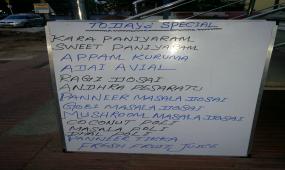 TODAYS SPECIAL
KARA PANIYARAM
SWEET PANIYARAM
APPAM KURUMA
ADAI AVIAL
RAGI DOSAI
ANDHRA PESARATU
PANNEER MASALA DOSAI
GOBI MASALA DOSAI
MUSHROOM MASALA DOSAI
COCONUT POLI
MASALA POLI
DHAL POLI
PANNEER TIKKA
FRESH FRUIT JUICE